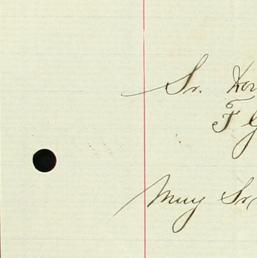 Sr. Hor
F. G
Muy Sr.